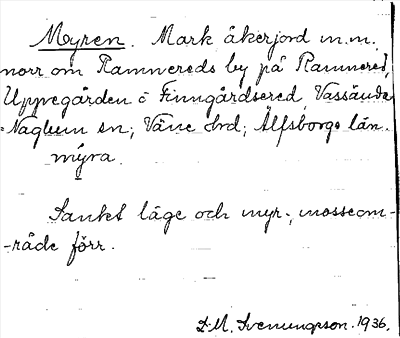 Myren. Mark åkerjord m.m.
norr om Ramnereds by på Ramnered,
Uppegården o Finngårdsered, Vassända
-Naglum sn; Väne hrd; Älfsborgs län.
myra.
Sankt läge och myr-, mosseom-
-råde förr.
L.M. Svenungsson. 1936.